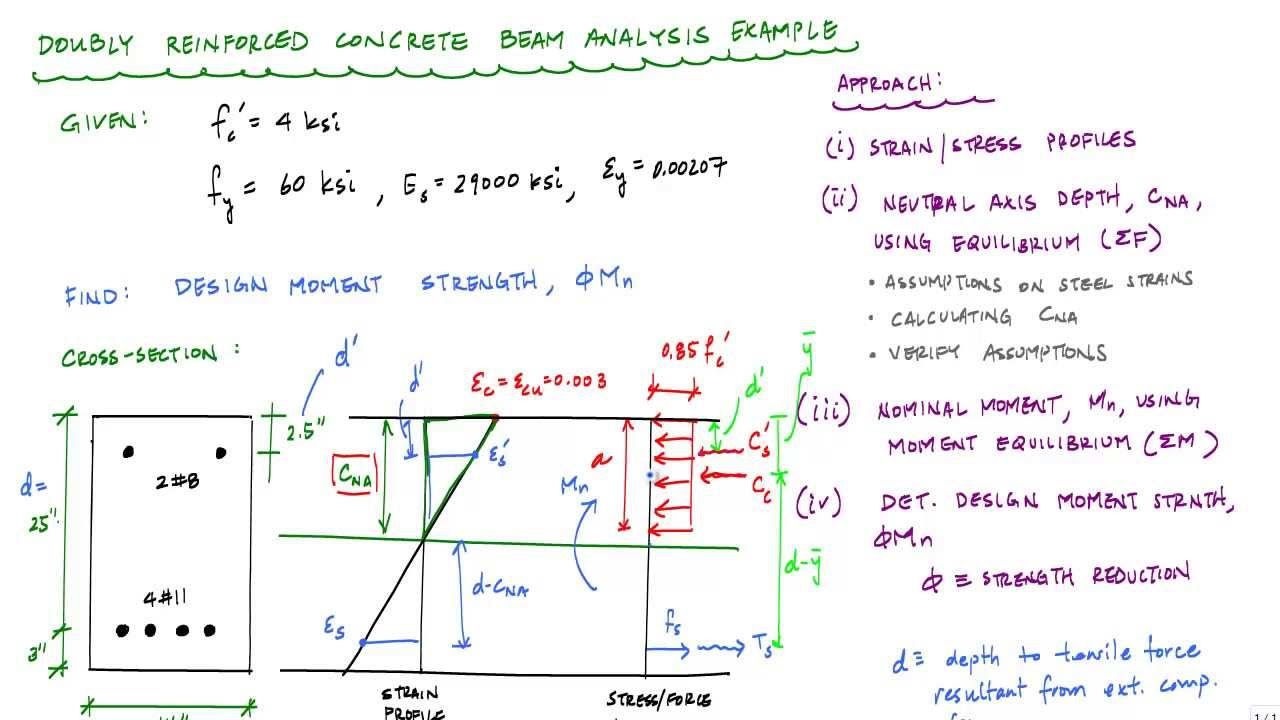 DOUBLY REINFORCED CONCRETE BEAM ANALYSIS EXAMPLE
GIVEN: fc' = 4 ksi
fy = 60 ksi, Es = 29000 ksi, εy = 0.00207
FIND: DESIGN MOMENT STRENGTH, ϕMn
CROSS-SECTION:
d'
2.5"
2#8
d=
25"
4#11
3"
d'
εc = εcu = 0.003
CNA
εs'
d-CNA
εs
STRAIN
PROFILE
0.85 fc'
ȳ
d'
a
Cs'
Cc
Mn
d-ȳ
fs
Ts
STRESS/FORCE
APPROACH:
(i) STRAIN/STRESS PROFILES
(ii) NEUTRAL AXIS DEPTH, CNA,
USING EQUILIBRIUM (ΣF)
• ASSUMPTIONS ON STEEL STRAINS
• CALCULATING CNA
• VERIFY ASSUMPTIONS
(iii) NOMINAL MOMENT, Mn, USING
MOMENT EQUILIBRIUM (ΣM)
(iv) DET. DESIGN MOMENT STRNTH,
ϕMn
ϕ ≡ STRENGTH REDUCTION
d ≡ depth to tensile force
resultant from ext. comp.
1/1